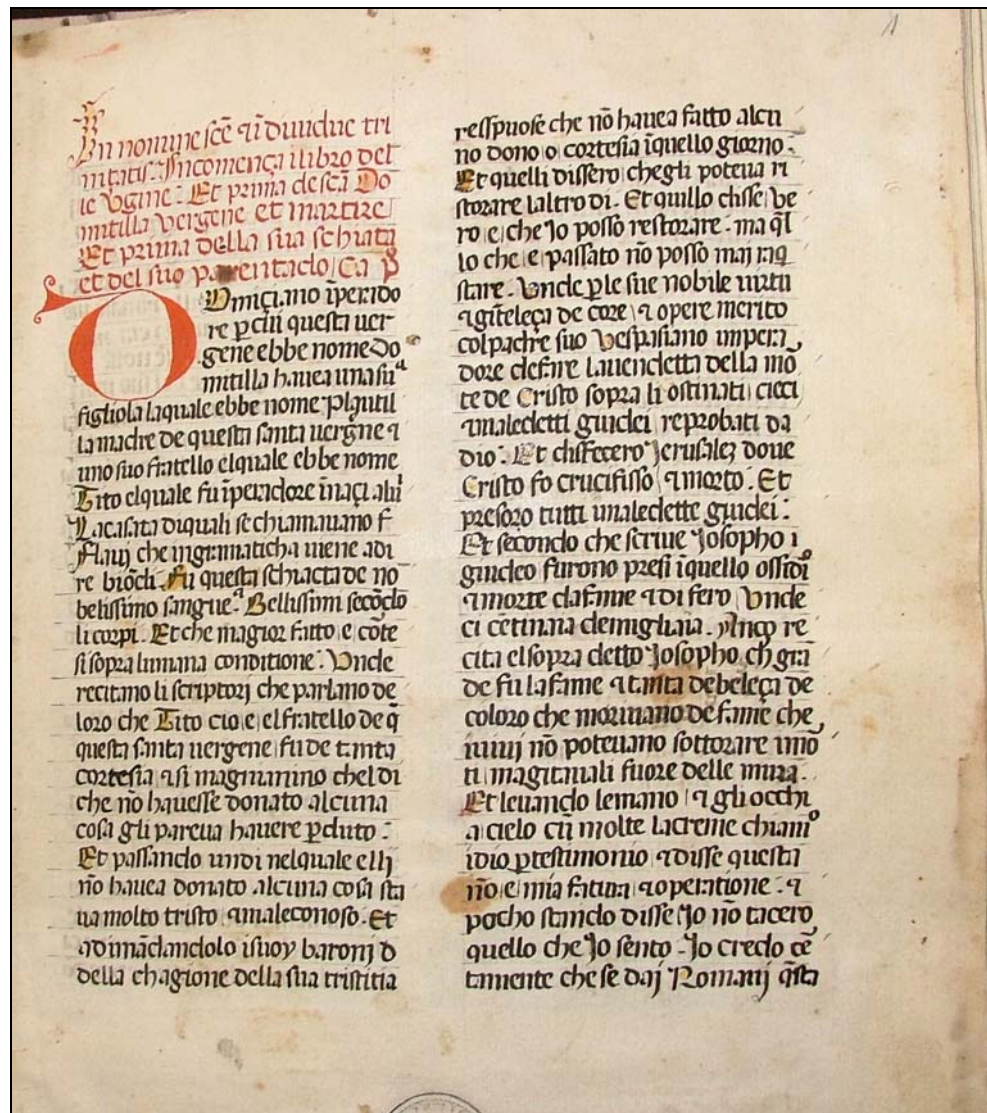 In nomine scē ⁊ īdiuidue tri
nitatis. Incomença ilibro del
le Vgine. Et prima de scā Do
mitilla vergene et martire
Et prima della sua schiata
et del suo parentado. Ca p̄
Omiçiano īperido
re p cui questa uer
gene ebbe nome Do
mitilla hauea una suᵃ
figliola laquale ebbe nome Plautil
la madre de questa santa uergne ⁊
uno suo fratello elquale ebbe nome
Tito elquale fu īperadore īnaçi aluⁱ
Lacasata diquali se chiamauano f
Flauij che ingramaticha uiene adi
re biōdi. Fu questa schiacta de no
belissimo sangue. Bellissimi secōdo
li corpi. Et che magior fatto e cōte
si sopra lumana conditione. Vnde
recitano li scriptorj che parlano de
loro che Tito cio e elfratello de q̄
questa santa uergene fu de tanta
cortesia ⁊ si magnanino chel di
che nō hauesse donato alcuna
cosa gli pareua hauere pduto.
Et passando undi nelquale ellj
nō hauea donato alcuna cosa sta
ua molto tristo ⁊maleconoso. Et
adimādandolo isuoy baronj d
della chagione della sua tristitia
resspuose che nō hauea fatto alcu
no dono o cortesia īquello giorno.
Et quelli dissero chegli poteua ri
storare laltro di. Et quillo disse ve
ro e che Jo posso restorare. ma ql̄
lo che e passato nō posso maj raq
stare. Vnde ple sue nobile uirtu
⁊gīteleça de core ⁊ opere merito
colpadre suo Vespasiano impera
dore defire lauendetta della mo
te de Cristo sopra li ostinati cieci
⁊maledetti giudei reprobati da
dio. Et disfecero Jerusaleʒ doue
Cristo fo crucifisso ⁊morto. Et
presoro tutti imaledette giudei.
Et secondo che scriue Josopho i
giudeo furono presi īquello ossidiº
⁊morte dafame ⁊di fero Vnde
ci cētinaia demigliaia. Anco re
cita elsopra detto Josopho ch grā
de fu lafame ⁊tanta debeleça de
coloro che moriuano defame che
iuiuj nō poteuano sottorare imō
ti magitauali fuore delle mura.
Et leuando lemano ⁊ gli occhi
a cielo cū molte lacreme chiamº
idio ptestimonio ⁊disse questa
nō e mia fatura ⁊operatione. ⁊
pocho stando disse Jo nō tacero
quello che Jo sento. Jo credo cē
tamente che se daj Romanj q̄sta